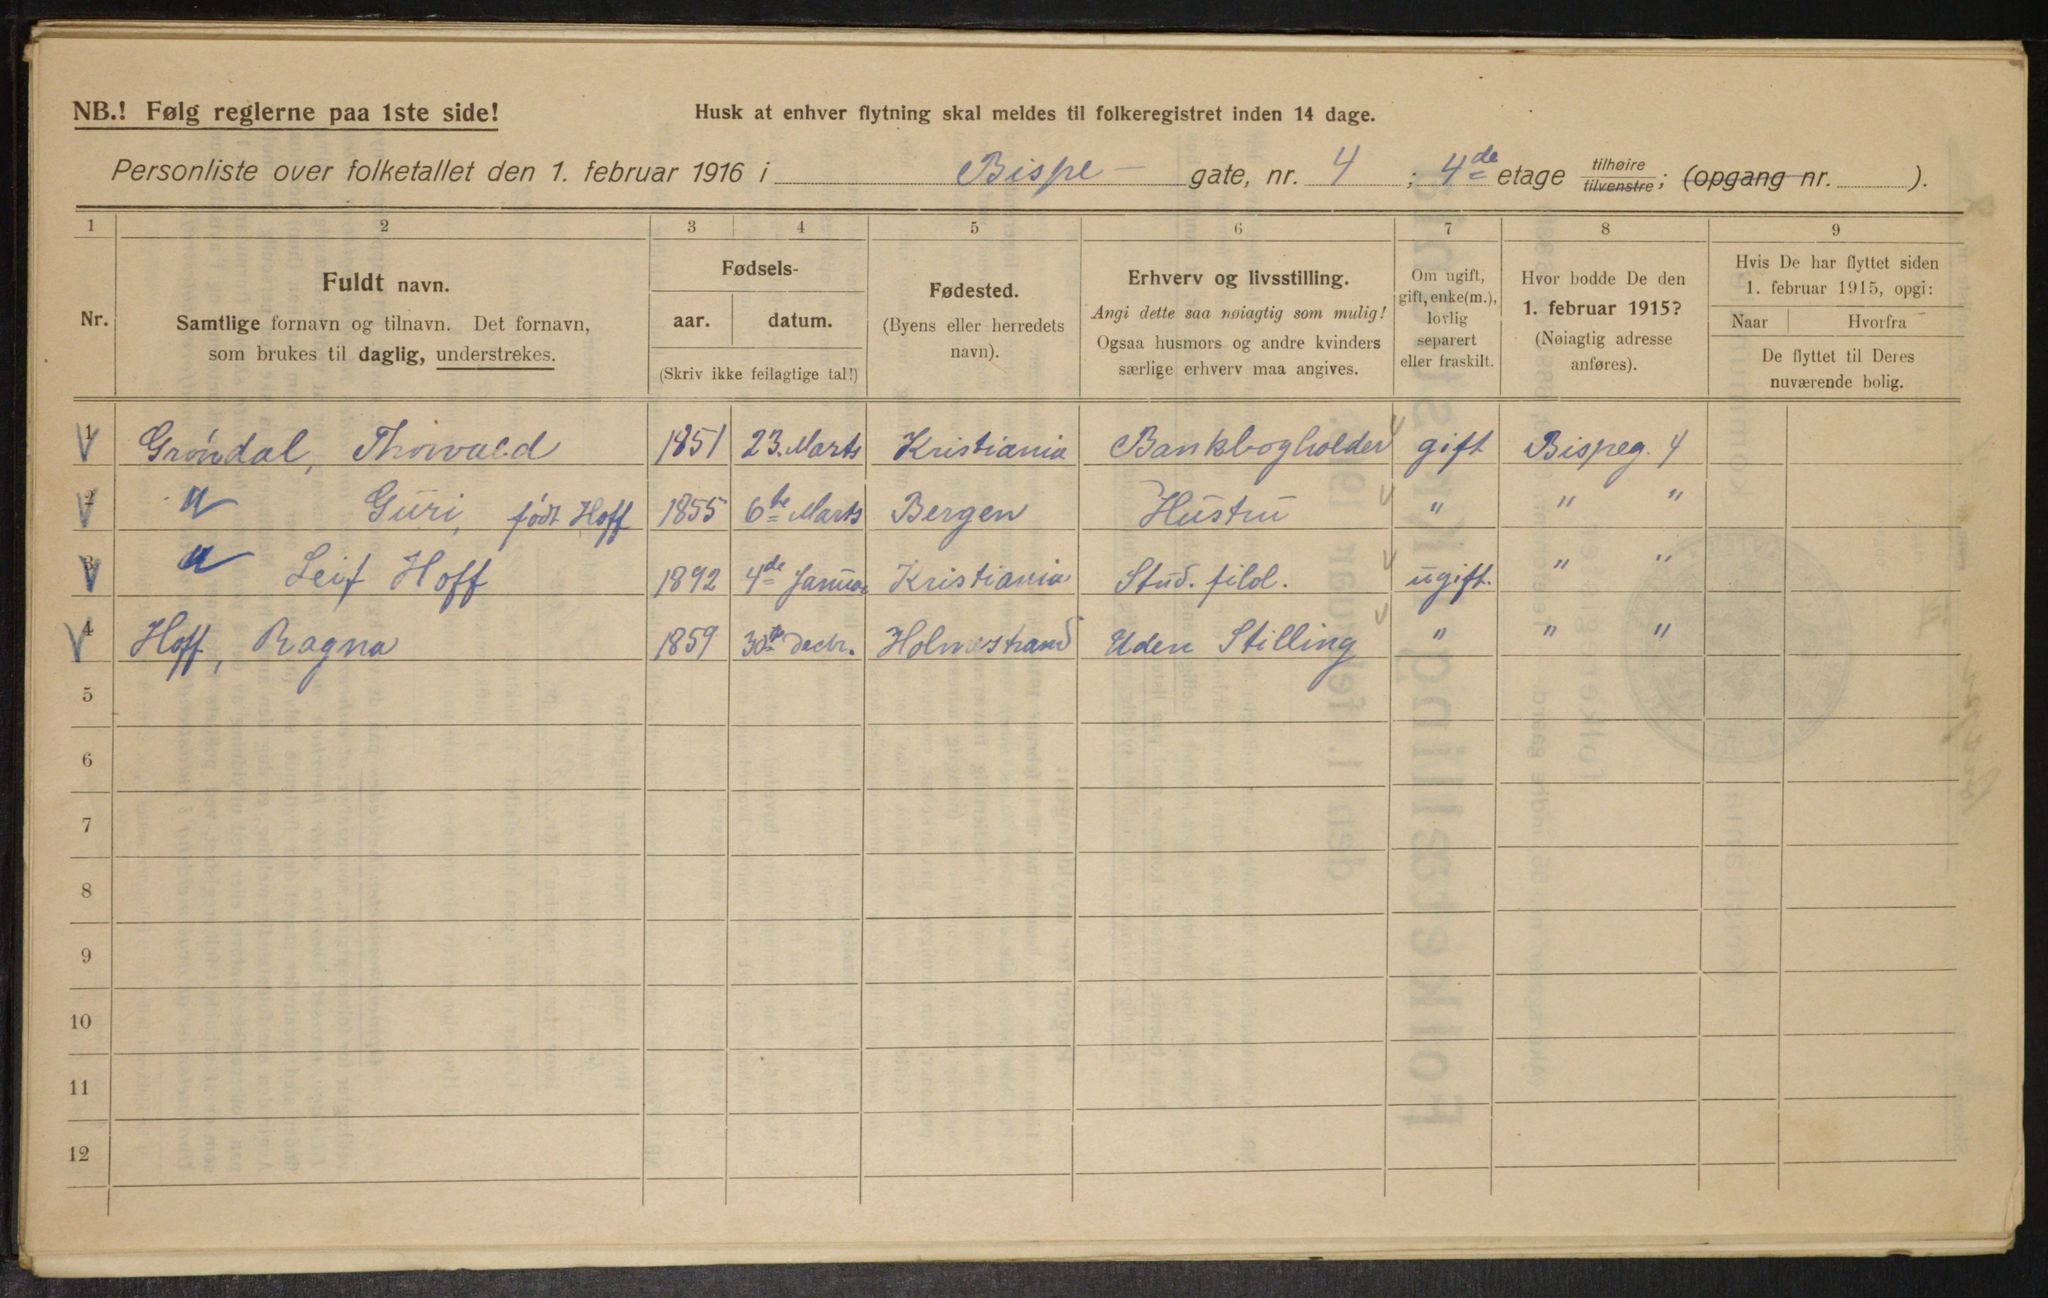 NB.! Følg reglerne paa 1ste side!
Husk at enhver flytning skal meldes til folkeregistret inden 14 dage.
Personliste over folketallet den 1. februar 1916 i Bispe- gate, nr. 4 ; 4de etage tilhøire tilvenstre; (opgang nr. ).
1 2 3 4 5 6 7 8 9
Nr.
Fuldt navn.
Samtlige fornavn og tilnavn. Det fornavn,
som brukes til daglig, understrekes.
Fødsels-
aar. datum.
(Skriv ikke feilagtige tal!)
Fødested.
(Byens eller herredets
navn).
Erhverv og livsstilling.
Angi dette saa nøiagtig som mulig!
Ogsaa husmors og andre kvinders
særlige erhverv maa angives.
Om ugift,
gift, enke(m.),
lovlig
separert
eller fraskilt.
Hvor bodde De den
1. februar 1915?
(Nøiagtig adresse
anføres).
Hvis De har flyttet siden
1. februar 1915, opgi:
Naar Hvorfra
De flyttet til Deres
nuværende bolig.
1 Grøndal, Thorvald 1851 23. Marts Kristiania Bankbogholder gift Bispeg. 4
2 " Guri, født Hoff 1855 6te Marts Bergen Hustru " " "
3 " Leif Hoff 1892 4de Januar Kristiania Stud. filol. ugift. " "
4 Hoff, Ragna 1859 30te Decbr. Holmestrand Uden Stilling " " "
5
6
7
8
9
10
11
12